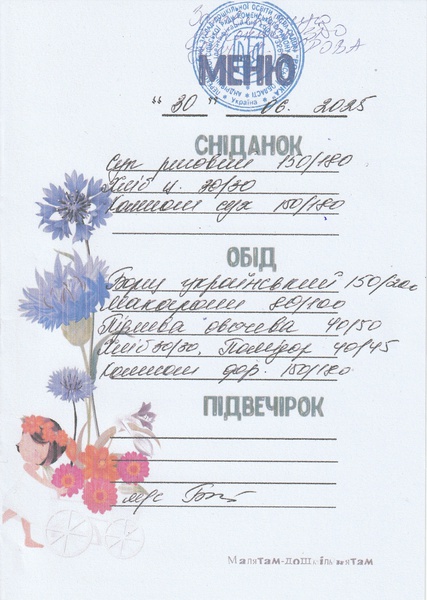 МЕНЮ
Україна
"30" 06. 2025
СНІДАНОК
Суп рисовий 150/180
Хліб ц. 30/30
Компот сух 150/180
ОБІД
Борщ український 150/200
Макарони 80/100
Підлива овочева 40/50
Хліб 30/30, Помідор 40/45
Компот 150/180
ПІДВЕЧІРОК
Малятам-дошкільнятам